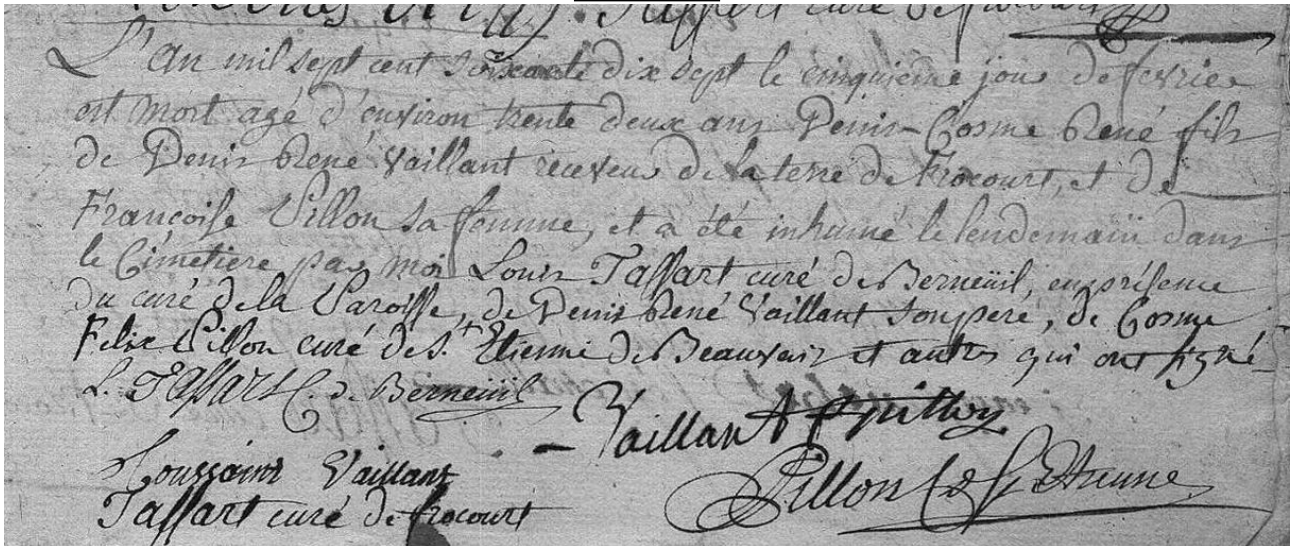 Taffart curé de frocourt
L'an mil sept cent soixante dix sept le cinquième jour de fevrier
est mort agé d'environ trente deux ans Denis-Cosme René fils
de Denis René Vaillant receveur de la terre de Frocourt, et de
Françoise Pillon sa femme, et a été inhumé le lendemain dans
le Cimetiere par moi Louis Taffart curé de Berneüil, en présence
du curé de la Paroisse, de Denis René Vaillant son pere, de Cosme
Felix Pillon curé de St. Etienne de Beauvais et autres qui ont signé
L. Taffart C. de Berneüil
Vaillant
Toussaint Vaillant
Pillon C de St Etienne
Taffart curé de frocourt